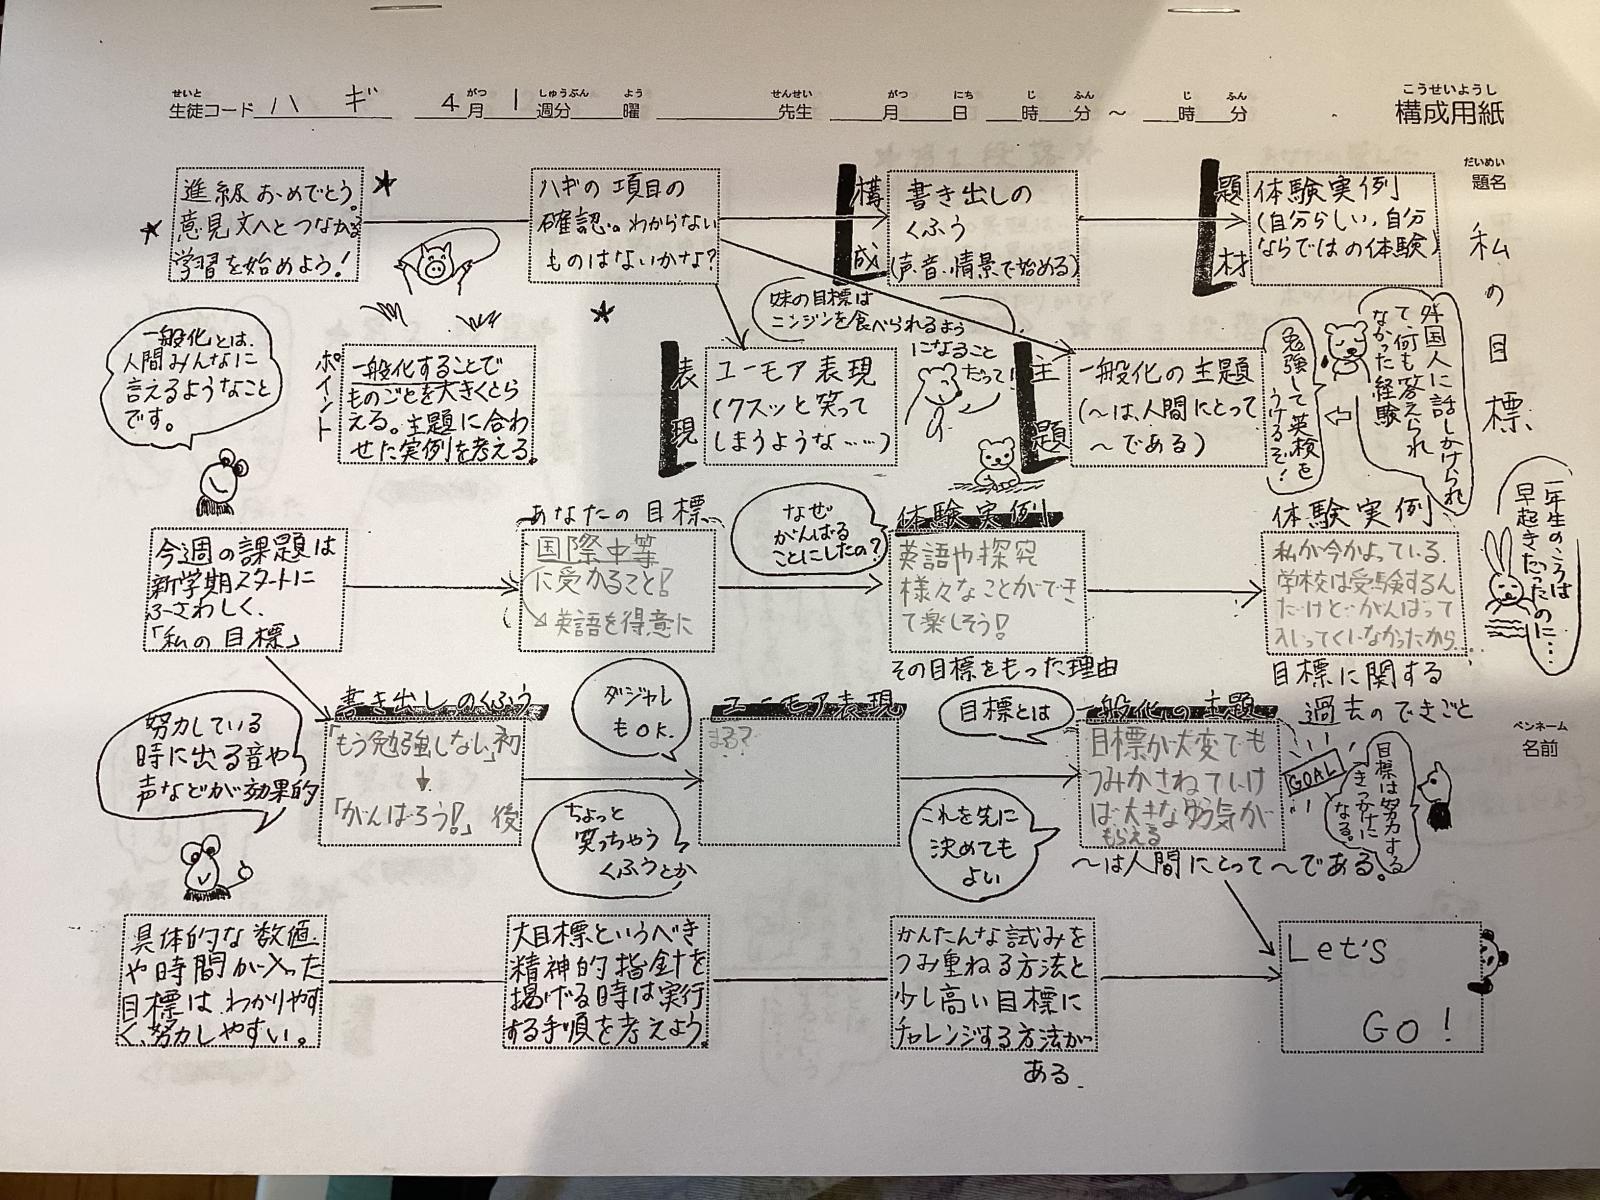 せいと がつ しゅうぶん よう せんせい がつ にち じ ふん じ ふん
生徒コード ハギ 4月 1週分 曜 先生 月 日 時 分 ～ 時 分
こうせいようし
構成用紙
だいめい
題名
私の目標
ペンネーム
名前
進級おめでとう。
意見文へとつながる
学習を始めよう!
ハギの項目の
確認。わからない
ものはないかな?
構成
書き出しの
くふう
(声、音、情景で始める)
題材
体験実例
(自分らしい、自分
ならではの体験)
一般化とは、
人間みんなに
言えるようなこと
です。
ポイント
一般化することで
ものごとを大きくとら
える。主題に合わ
せた実例を考える。
表現
ユーモア表現
(クスッと笑って
しまうような……)
妹の目標は
ニンジンを食べられるよう
になること
だって!
主題
一般化の主題
(～は、人間にとって
～である)
外国人に話しかけられ
て、何も答えられ
なかった経験
勉強して英検を
うけるぞ!
今週の課題は
新学期スタートに
ふさわしく、
「私の目標」
あなたの目標
国際中等
に受かること!
↘英語を得意に
なぜ
がんばる
ことにしたの?
体験実例
英語や探究
様々なことができ
て楽しそう!
その目標をもった理由
体験実例
私が今かよっている
学校は受験するん
だけどがんばって
入いってくしなかったから
目標に関する
過去のできごと
一年生のころは
早起きだったのに…
努力している
時に出る音や
声などが効果的
書き出しのくふう
「もう勉強しない」初
↓
「がんばろう!」後
ダジャレ
もOK.
ちょっと
笑っちゃう
くふうとか
ユーモア表現
まる?
目標とは
これを先に
決めても
よい
一般化の主題
目標が大変でも
つみかさねていけ
ば大きな勇気が
もらえる
～は人間にとって～である。
GOAL
目標は努力する
きっかけに
なる。
具体的な数値
や時間が入った
目標は、わかりやす
く、努力しやすい。
大目標というべき
精神的指針を
掲げる時は実行
する手順を考えよう。
かんたんな試みを
つみ重ねる方法と
少し高い目標に
チャレンジする方法が
ある.
Let's
GO!